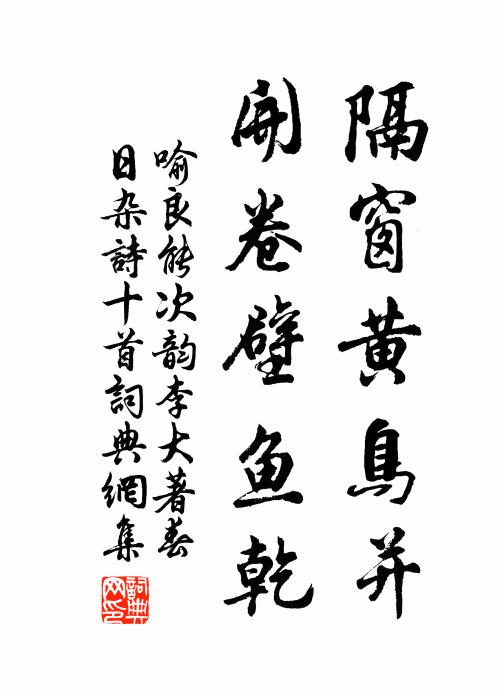 隔窗黄鳥并
開卷壁鱼乾
喻良能次韵李大著春
日杂詩十首詞典網集
詞典网印